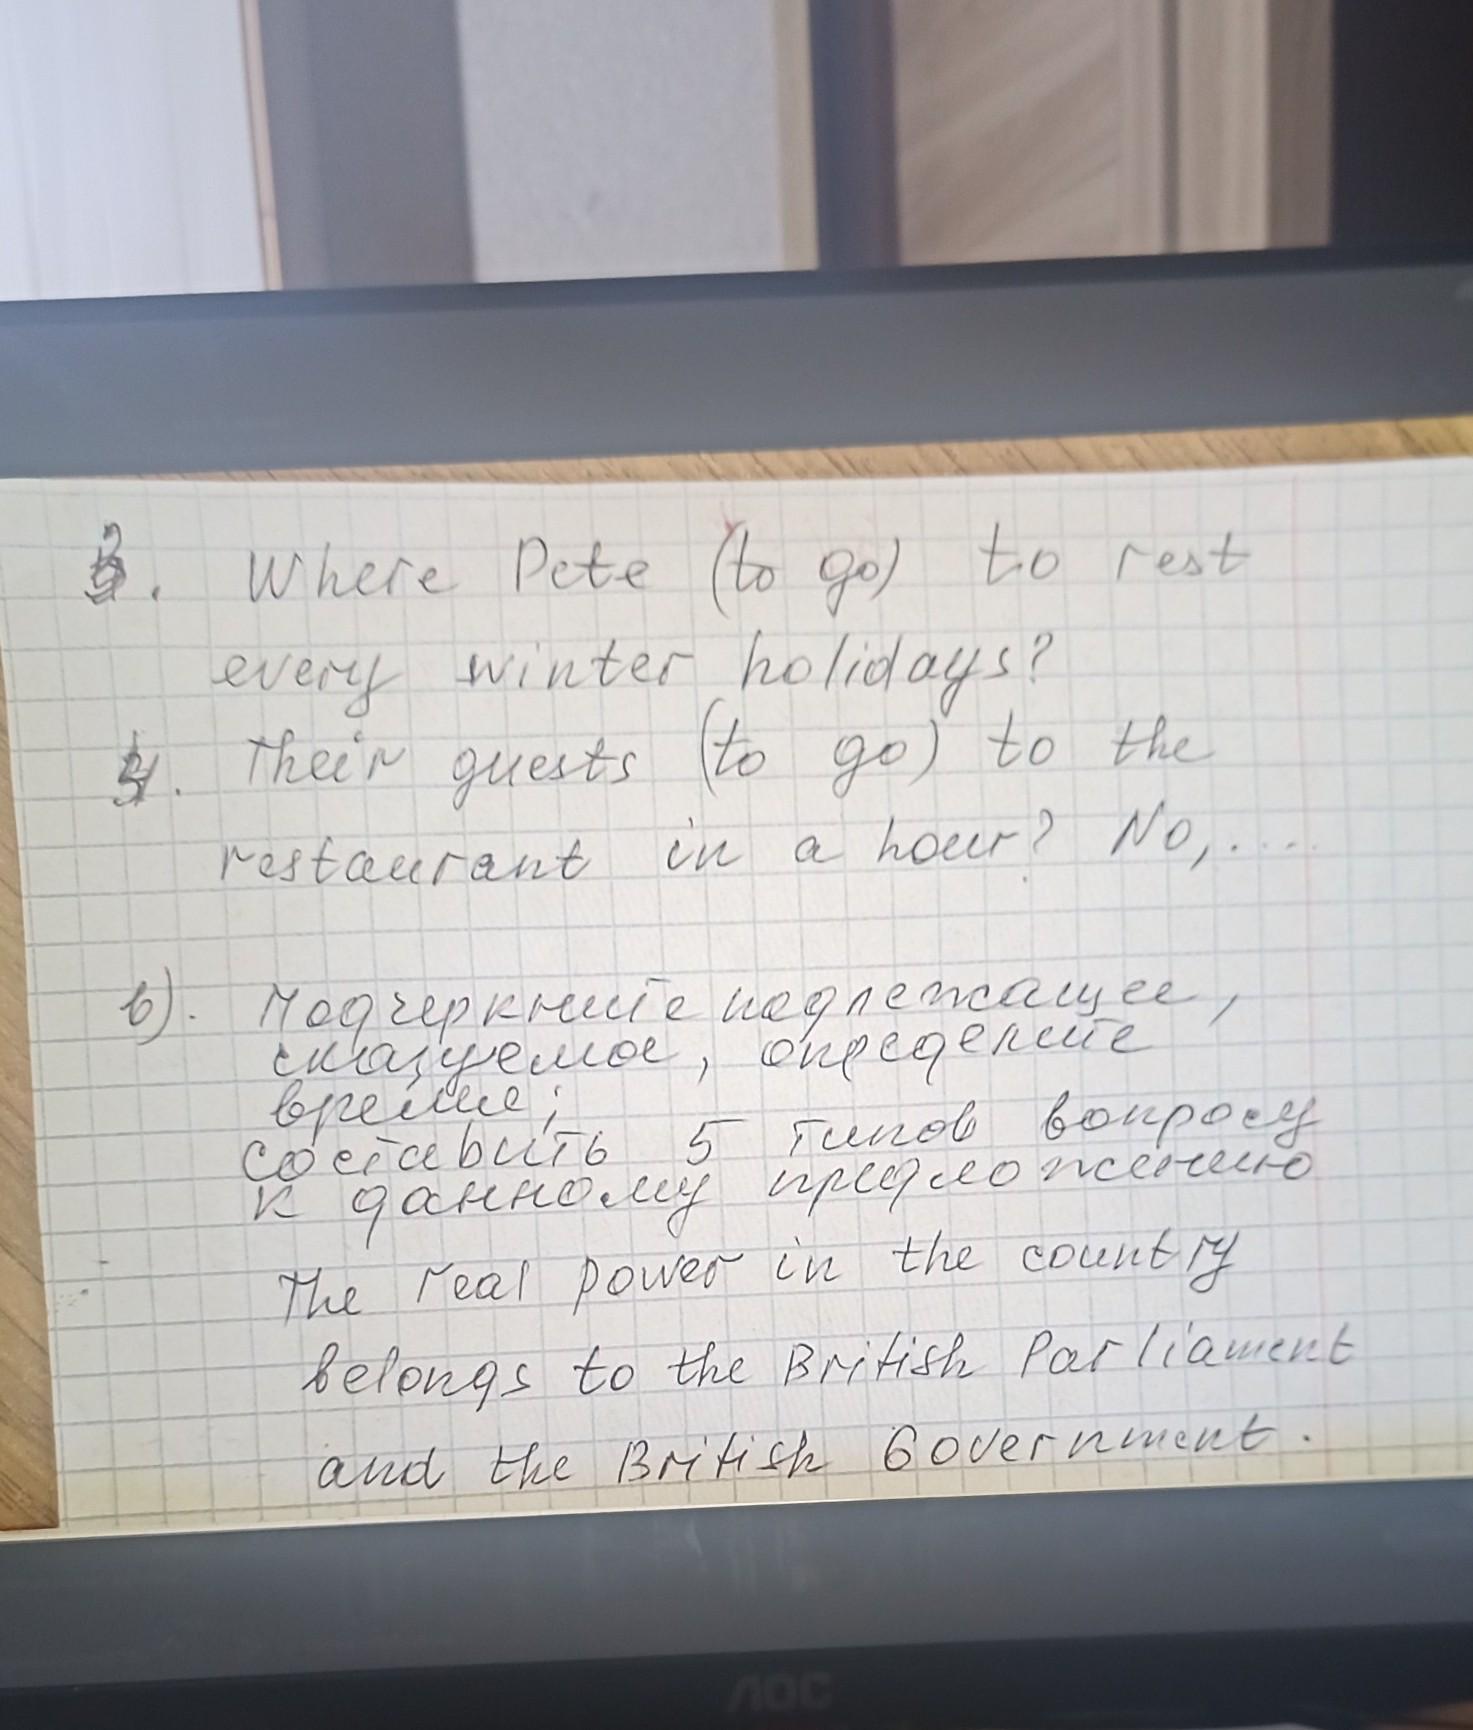 3. Where Pete (to go) to rest
every winter holidays?
4. Their guests (to go) to the
restaurant in a hour? No,....
b). Подчеркните подлежащее,
сказуемое, определите
время;
составить 5 типов вопросу
к данному предложению
The real power in the country
belongs to the British Parliament
and the British Government.
AOC